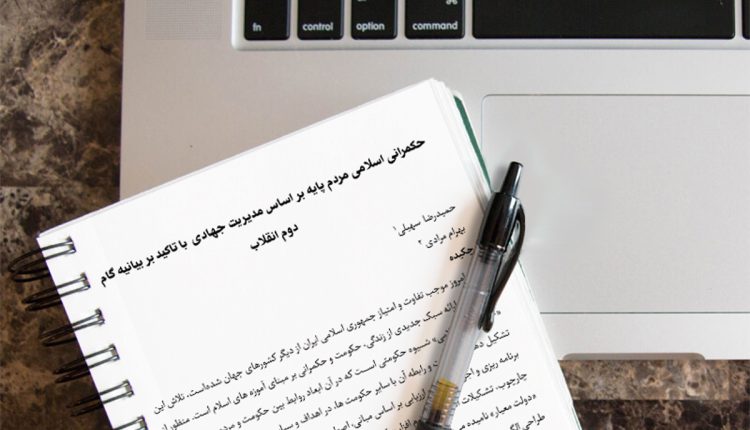 fn
control
option
command
حکمرانی اسلامی مردم پایه بر اساس مدیریت جهادی با تاکید بر بیانیه گام
دوم انقلاب
حمیدرضا سهیلی ۱
بهرام مرادی ۲
چکیده
امروز موجب تفاوت و امتیاز جمهوری اسلامی ایران از دیگر کشورهای جهان شده‌است. تلاش این
ارائه سبک جدیدی از زندگی، حکومت و حکمرانی بر مبنای آموزه های اسلام است. منظور از
شیوه حکومتی است که در آن ابعاد روابط بین حکومت و مردم
تشکیل و رابطه آن با سایر حکومت ها، در اهداف و
برنامه ریزی و ارزیابی بر اساس مبانی
چارچوب، تشکیلات
«دولت معیار» نامیده
طراحی